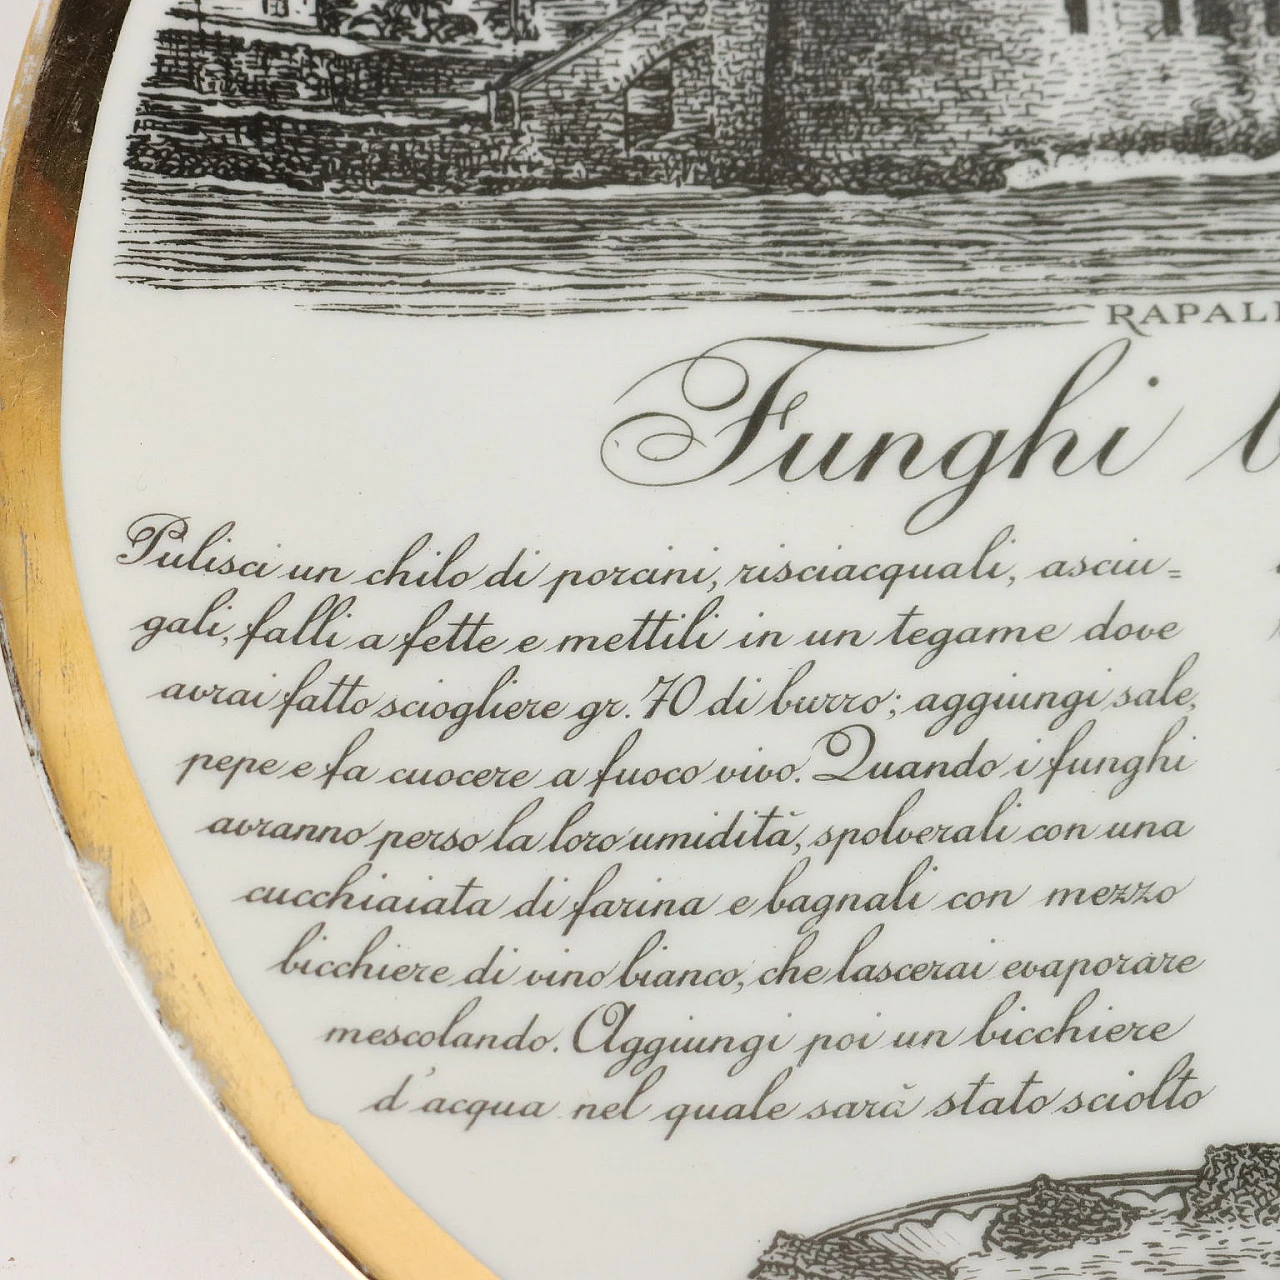 RAPAL
Funghi
Pulisci un chilo di porcini, risciacquali, asciu=
gali, falli a fette e mettili in un tegame dove
avrai fatto sciogliere gr. 70 di burro; aggiungi sale,
pepe e fa cuocere a fuoco vivo. Quando i funghi
avranno perso la loro umidità, spolverali con una
cucchiaiata di farina e bagnali con mezzo
bicchiere di vino bianco, che lascerai evaporare
mescolando. Aggiungi poi un bicchiere
d'acqua nel quale sarà stato sciolto